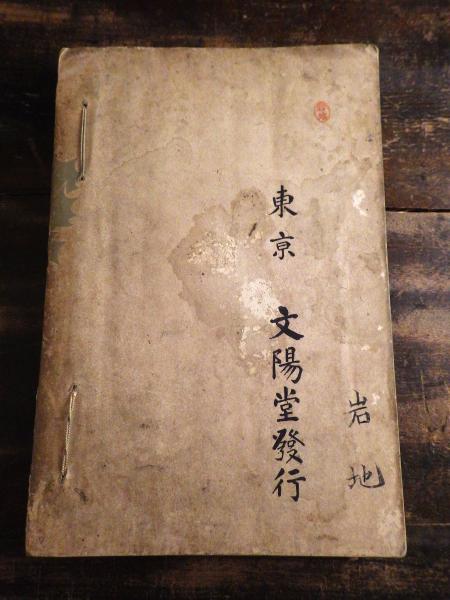 岩地
東京 文陽堂發行